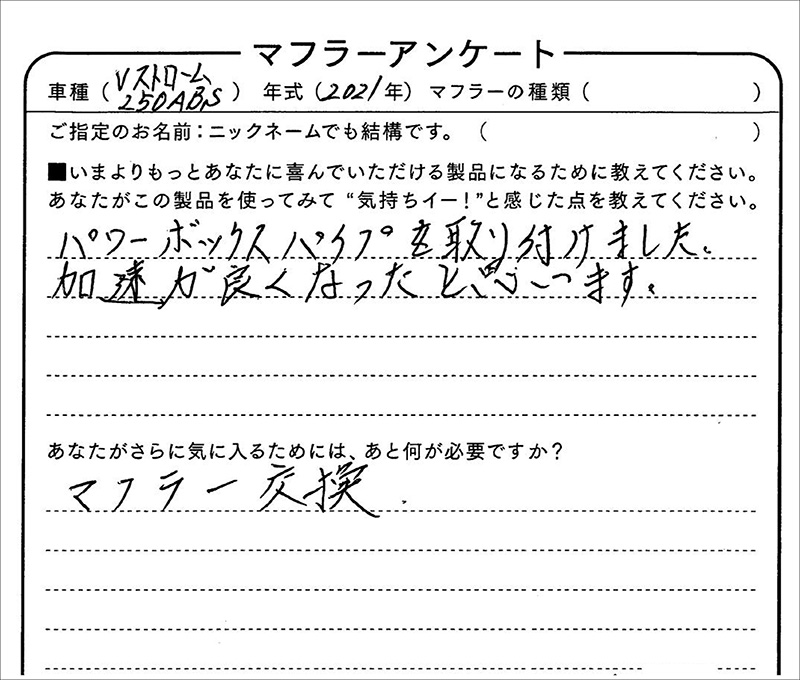 マフラーアンケート
車種（Vストローム 250ABS） 年式（2021年） マフラーの種類（ ）
ご指定のお名前：ニックネームでも結構です。（ ）
■いまよりもっとあなたに喜んでいただける製品になるために教えてください。
あなたがこの製品を使ってみて“気持ちイー！”と感じた点を教えてください。
パワーボックスパイプを取り付けました。
加速が良くなったと思います。
あなたがさらに気に入るためには、あと何が必要ですか？
マフラー交換.